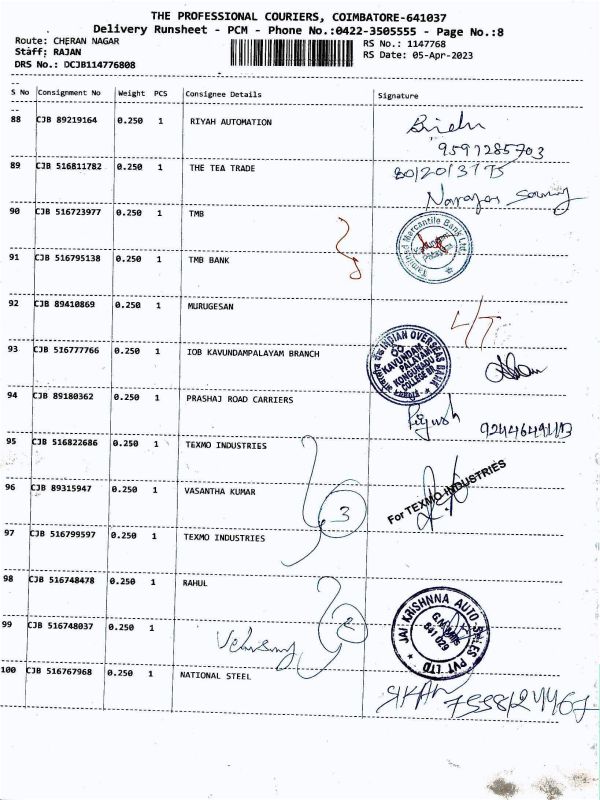 THE PROFESSIONAL COURIERS, COIMBATORE-641037
Delivery Runsheet - PCM - Phone No.:0422-3505555 - Page No.:8
Route: CHERAN NAGAR RS No.: 1147768
Staff: RAJAN RS Date: 05-Apr-2023
DRS No.: DCJB114776808
S No Consignment No Weight PCS Consignee Details Signature
88 CJB 89219164 0.250 1 RIYAH AUTOMATION
9597285703
89 CJB 516811782 0.250 1 THE TEA TRADE
90 CJB 516723977 0.250 1 TMB
Tamilnad Mercantile Bank Ltd.
91 CJB 516795138 0.250 1 TMB BANK
92 CJB 89410869 0.250 1 MURUGESAN
L/T
93 CJB 516777766 0.250 1 IOB KAVUNDAMPALAYAM BRANCH
INDIAN OVERSEAS BANK
KAVUNDAM
PALAYAM
KONGUNADU
COLLEGE BR
94 CJB 89180362 0.250 1 PRASHAJ ROAD CARRIERS
95 CJB 516822686 0.250 1 TEXMO INDUSTRIES
For TEXMO INDUSTRIES
96 CJB 89315947 0.250 1 VASANTHA KUMAR
3
97 CJB 516799597 0.250 1 TEXMO INDUSTRIES
98 CJB 516748478 0.250 1 RAHUL
99 CJB 516748037 0.250 1
2
JAI KRISHNNA AUTO SALES PVT LTD
641 029
100 CJB 516767968 0.250 1 NATIONAL STEEL